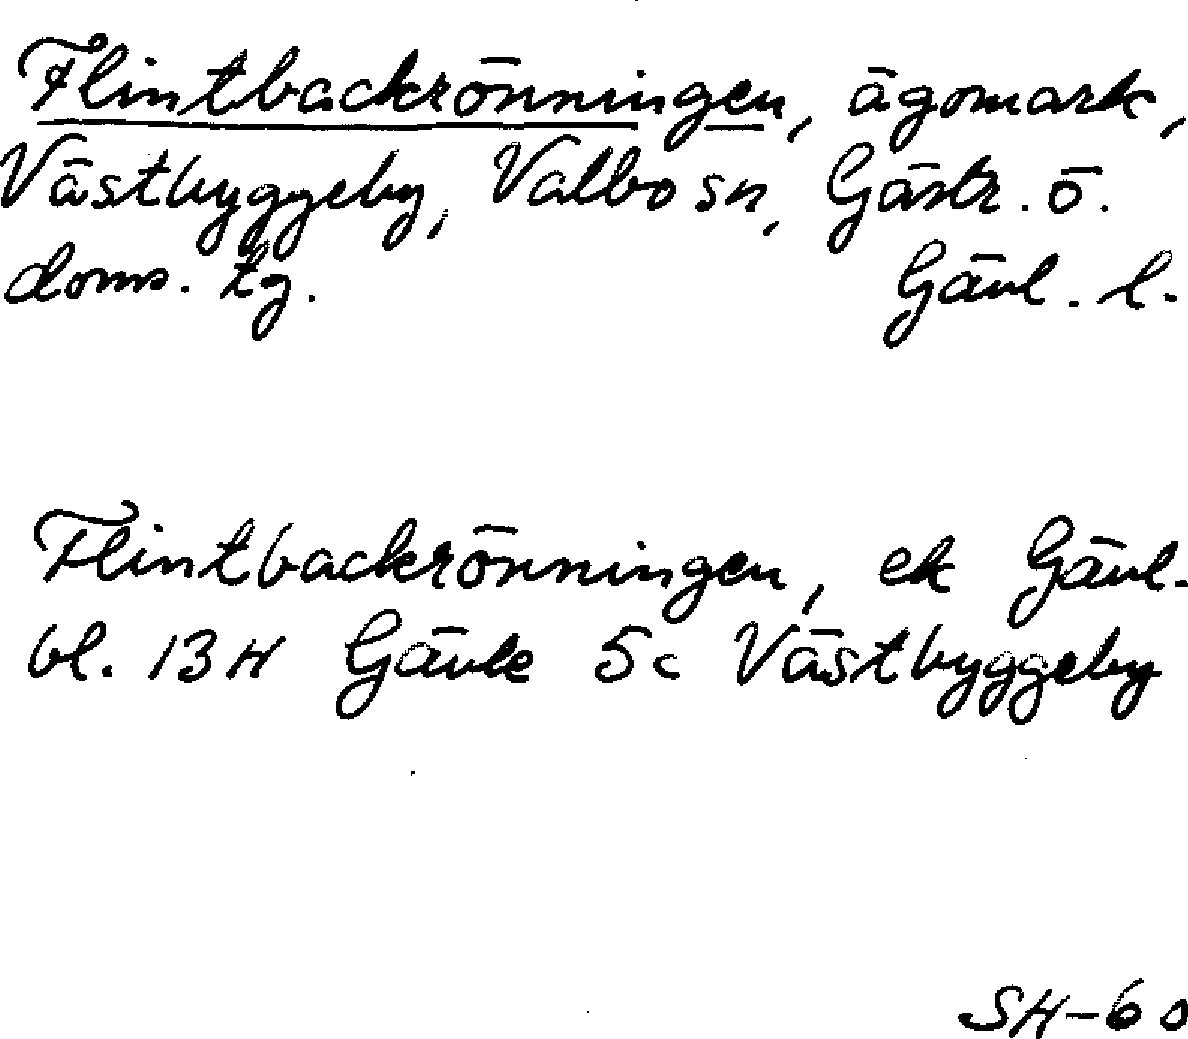 Flintbackrönningen, ägomark,
Västbyggeby, Valbo sn, Gästr. ö.
doms. tg. Gävl. l.
Flintbackrönningen, ek Gävl.
bl. 13H Gävle 5c Västbyggeby
SH-60